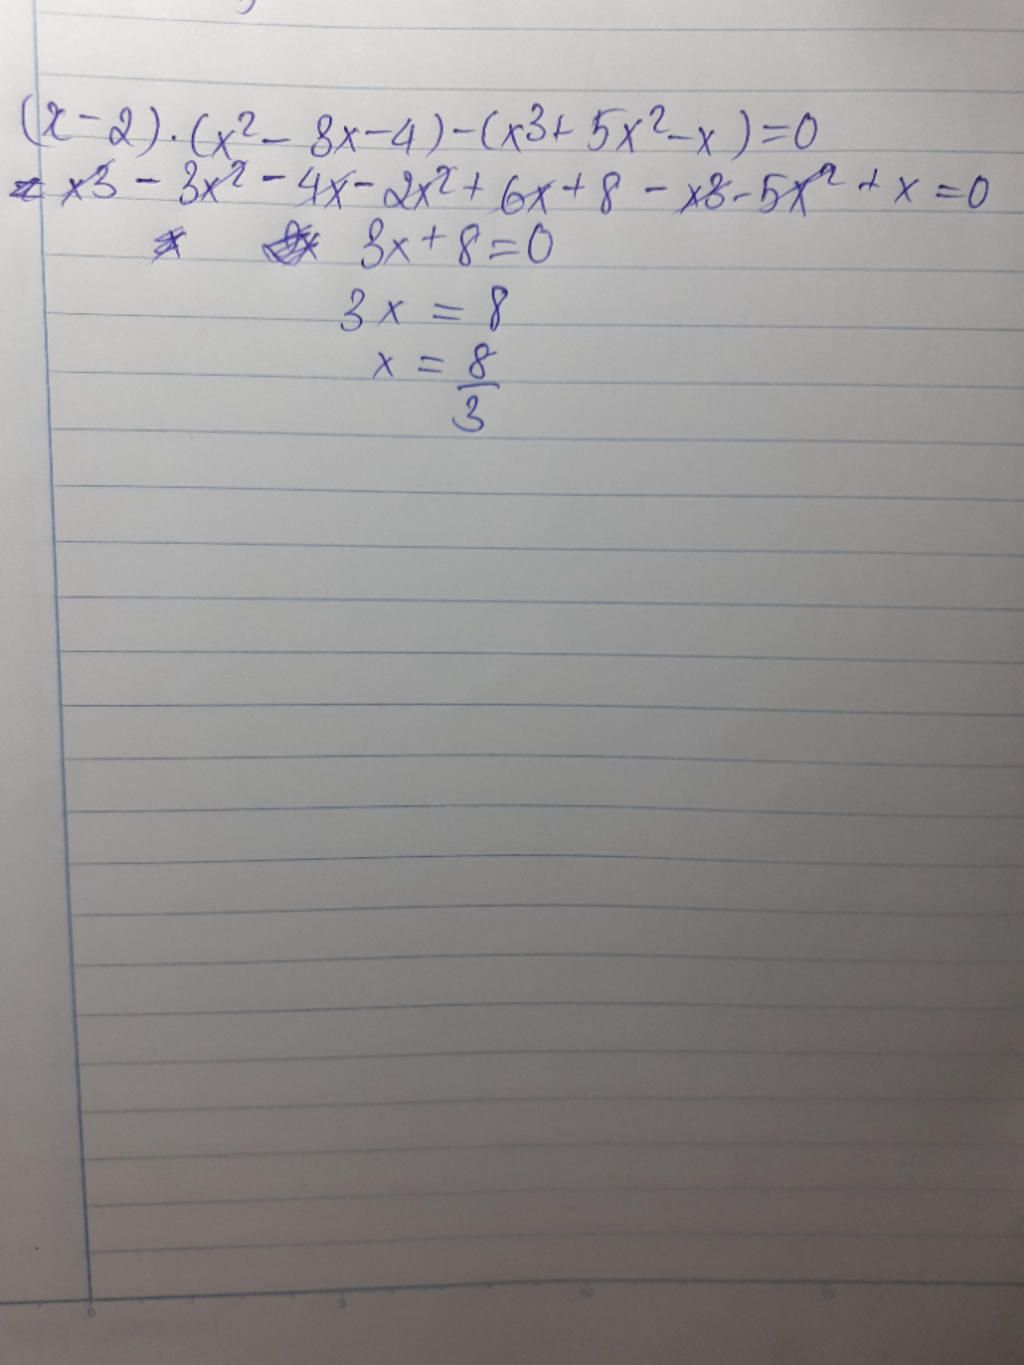 (x-2).(x²-3x-4)-(x3+5x²-x)=0
x3-3x²-4x-2x²+6x+8-x3-5x²+x=0
3x+8=0
3x=8
x=8/3